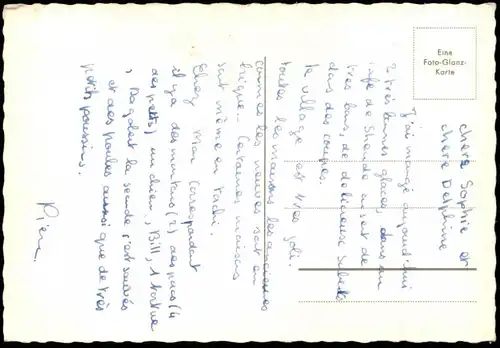 Eine
Foto-Glanz-
Karte
chère Sophie et
chère Delphine
J'ai mangé aujourd'hui
2 très bonnes glaces, dans un
café de
très bons, de délicieux
dans des coupes.
le village est très joli.
toutes les maisons les anciennes
comme les neuves sont en
brique. Certaines maisons
sont même en
Chez mon correspondant
il y a des moutons (2) des paons (4
des petits) un chien, Bill, 1 tortue
, Dagobert la seconde s'est sauvée
et des poules aussi que de très
petits poussins.
Pierre.